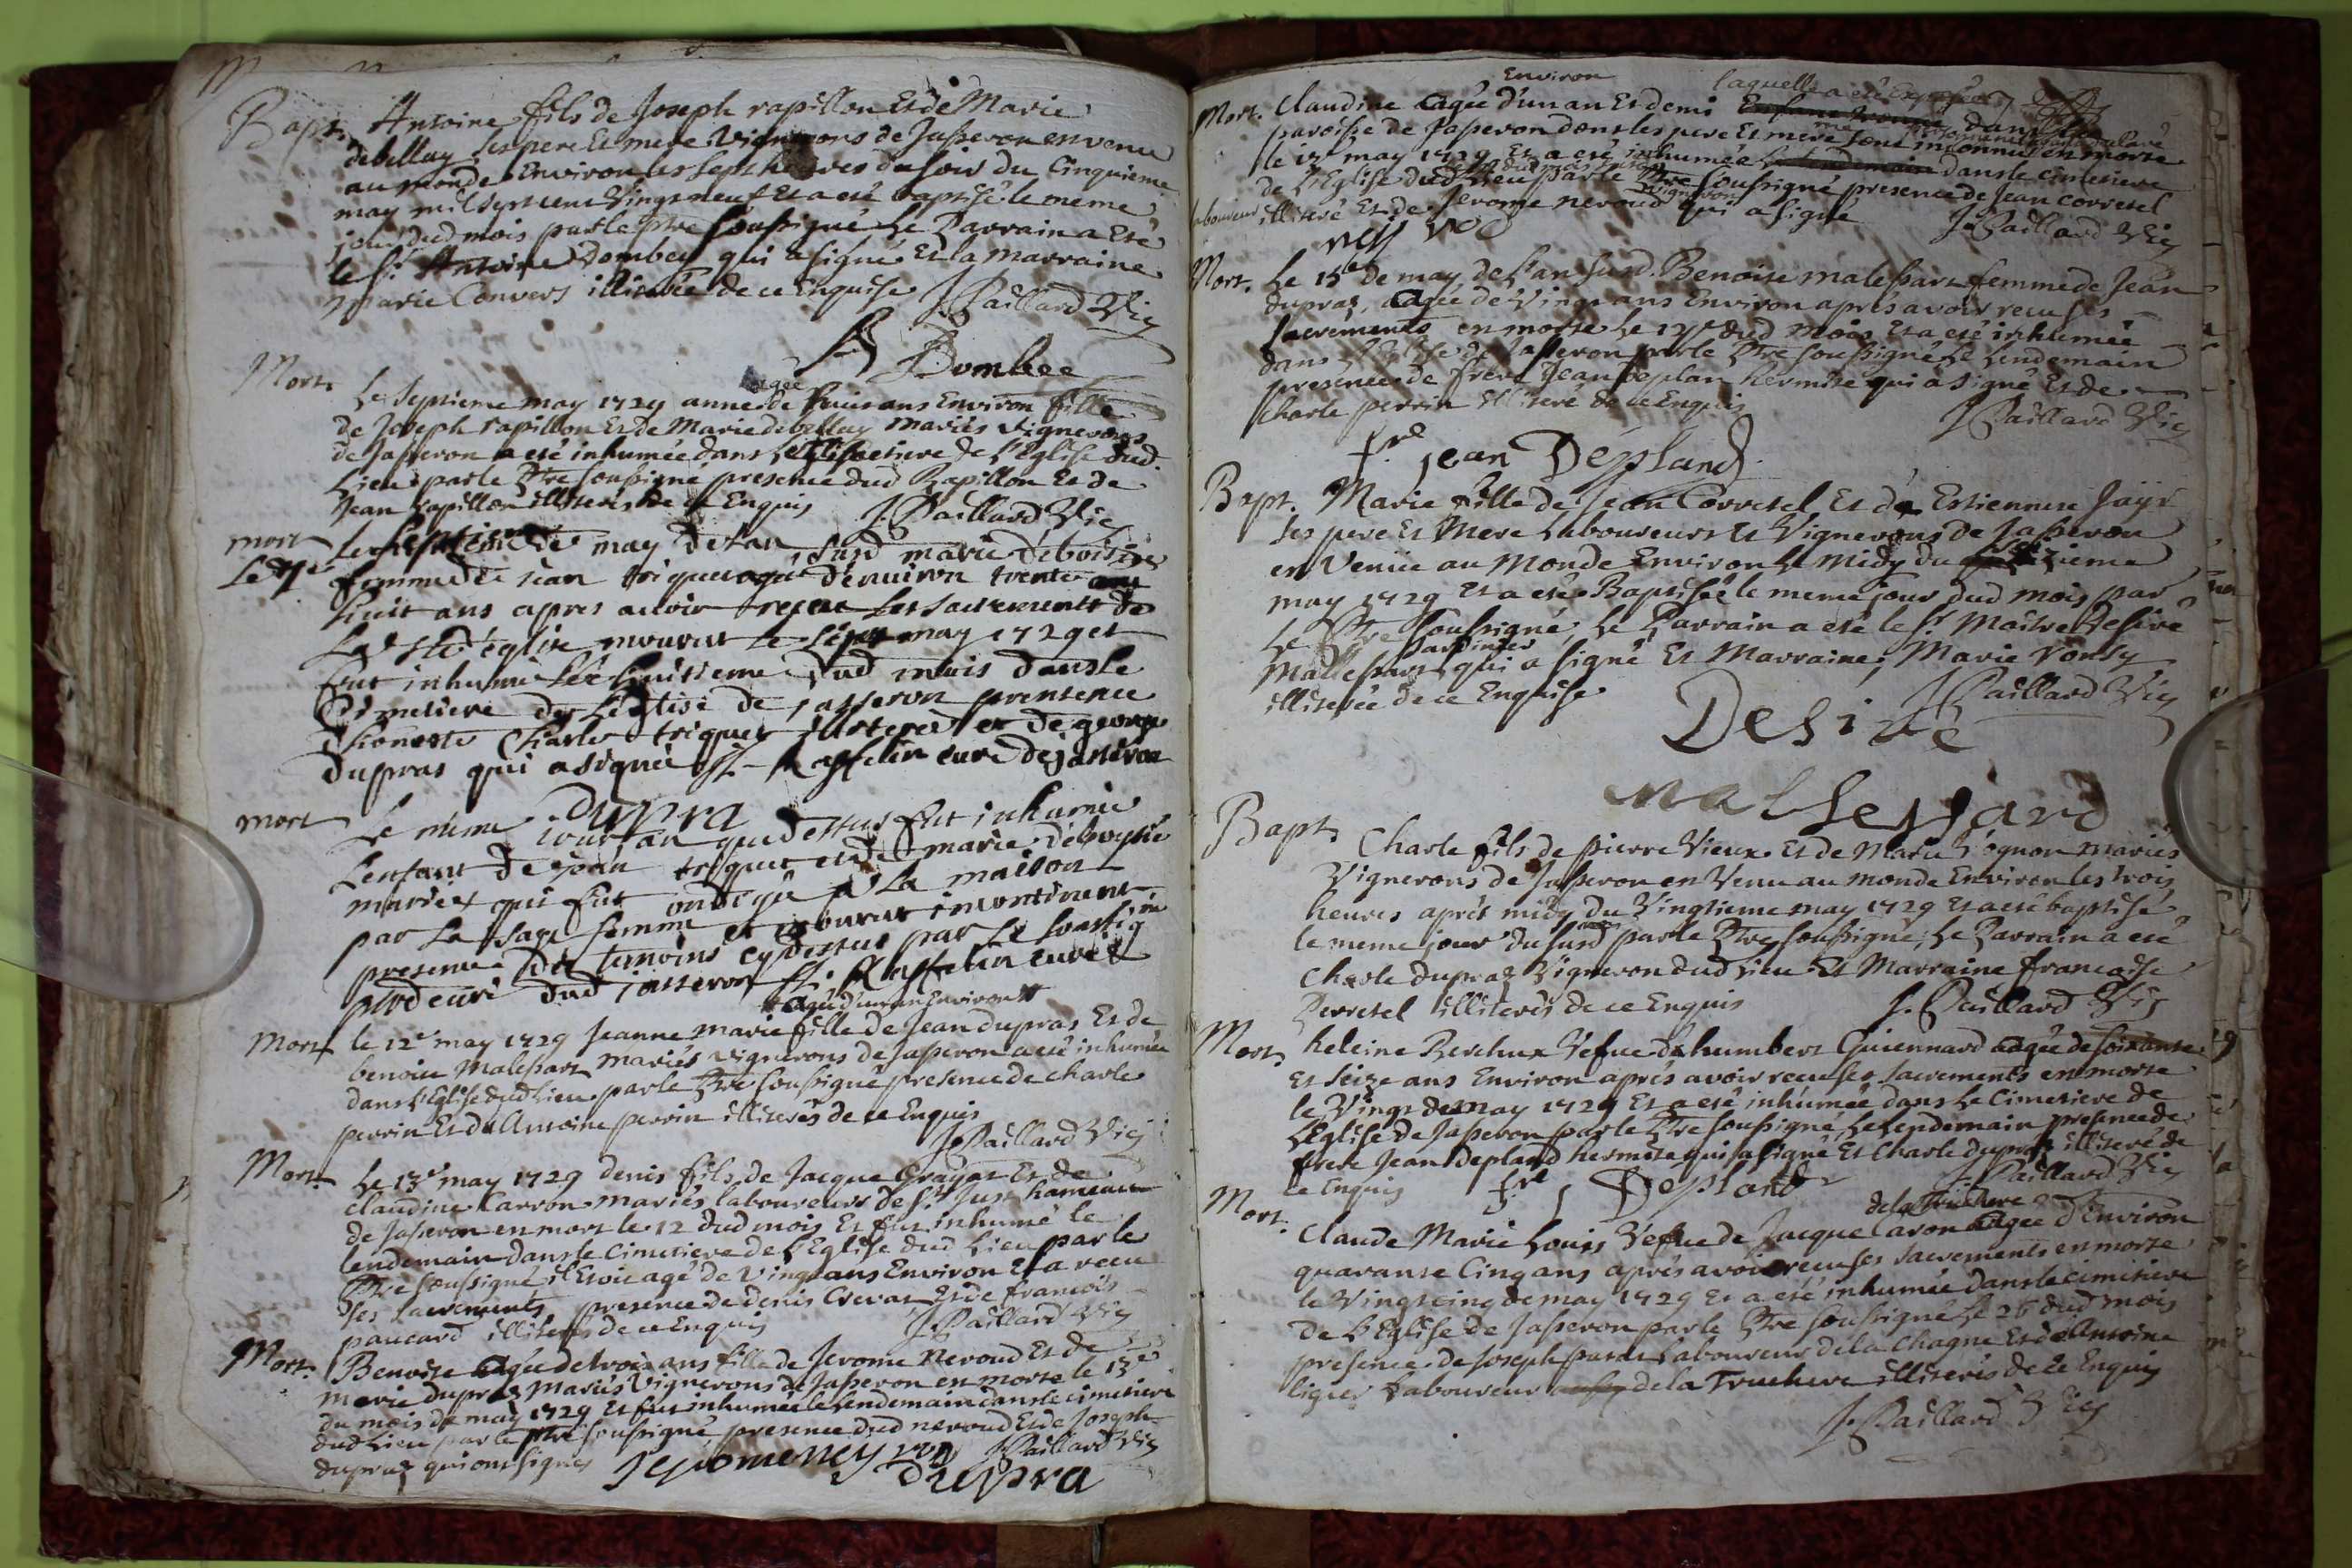 Bapt. Antoine fils de Joseph rapillon Et de Marie
debellay ses pere Et mere Vignerons de Jasseron en venu
au monde Environ les sept heures du soir du Cinquieme
may mil sept cent Vingt neuf Et a eté baptisé le meme
jour dud mois par le ptre soussigné Le Parrain a Eté
le Sr. Antoine Dombey qui a signé Et la Marraine
Marie Convers illiterée de ce Enquise J. Paillard Vic
A Dombee
Mort. Le septieme may 1729 anne agée de huit ans Environ fille
de Joseph rapillon Et de Marie debellay mariés Vignerons
de Jasseron a eté inhumée dans le Cimetiere de l'Eglise dud.
Lieu par le Ptre soussigné presence dud Rapillon Et de
Jean rapillon illiterés de ce Enquis J. Paillard Vic
mort Le septieme de may de lan susd marie deboissie
Le 7e femme de jean triquet agée denviron trente
huit ans apres avoir receu les sacrements de
La Ste église mourut le 7e may 1729 et
fut inhumé le huitieme dud mois dans le
Cimetiere de Léglise de jasseron presence
d'honeste Charle triquet illiteré et de george
dupras qui a signé Raffelin curé de jasseron
dupra
mort Le meme jour an que dessus fut inhumé
Lenfant de jean triquet et de marie deboyssie
mariés qui fut ondoyé a la maison
par La sage femme et mourut incontinent
presence des temoins cy dessus par Le soussigné
curé dud jasseron Raffelin curé
agée d'un an Environ
Mort le 12e may 1729 Jeanne marie fille de Jean dupras Et de
benoite Malessart mariés vignerons de Jasseron a eté inhumée
dans l'Eglise dud Lieu par le Ptre soussigné presence de charle
perrin Et de Antoine perrin illiterés de ce Enquis
J. Paillard Vic
Mort. Le 13e may 1729 denis fils de Jacque Grayat Et de
Claudine Carron mariés laboureurs de St. Just hameau
de Jasseron en mort le 12 dud mois Et fut inhumé le
lendemain dans le Cimetiere de l'Eglise dud Lieu par le
Ptre soussigné il Etoit agé de Vingt ans Environ Et a receu
ses sacrements presence de denis Crevat Et de francois
paucard illiterés de ce Enquis J. Paillard Vic
Mort. Benoite agée de trois ans fille de Jerome Neroud Et de
marie dupras Mariés Vignerons de Jasseron en morte le 13e
du mois de may 1729 Et fut inhumée le lendemain dans le cimetiere
dud Lieu par le ptre soussigné presence dud neroud Et de Joseph
dupraz qui ont signés J. Paillard Vic
dupra
Environ laquelle a eté Exposée
Mort. Claudine agée d'un an Et demi dans la
paroisse de Jasseron dont les pere Et mere sont inconnus en morte
le 13e may 1729 Et a eté inhumée dans le cimetiere
de l'Eglise dud Lieu par le Ptre soussigné presence de Jean corretel
laboureur illiteré Et de Jerome neroud vigneron qui a signé J. Paillard Vic
Mort. Le 18e de may de l'an susd. Benoite malessart femme de Jean
dupraz, agée de Vingt ans Environ aprés avoir receu ses
sacrements en morte le 17e dud mois Et a eté inhumée
dans l'Eglise de Jasseron par le Ptre soussigné Le lendemain
presence de frere Jean deplan hermite qui a signé Et de
Charle perrin illiteré de ce Enquis J. Paillard Vic
fre jean Dépland
Bapt. Marie fille de Jean Corretel Et de Estiennete Jayr
ses pere Et Mere Laboureurs Et Vignerons de Jasseron
en Venüe au Monde Environ le Midy du
may 1729 Et a eté Baptisée le meme jour dud mois par
Le Ptre soussigné, Le Parrain a eté le Sr Maitre Desiré
Mallessart jardinier qui a signé Et Marraine, Marie Vonsy
illiterée de ce Enquise J. Paillard Vic
Desiré
Malsessard
Bapt. Charle fils de pierre Vieux Et de Marie mariés
Vignerons de Jasseron en Venu au monde Environ les trois
heures aprés midy du Vingtieme may 1729 Et a eté baptisé
le meme jour du susd mois par le Ptre soussigné; Le Parrain a eté
Charle dupraz Vigneron dud Lieu Et Marraine francoise
Perretel illiterés de ce Enquis J. Paillard Vic
Mort. heleine Berchux Vefue de humbert Guiennard agée de soixante
Et seize ans Environ aprés avoir receu ses sacrements en morte
le Vingt de may 1729 Et a eté inhumée dans le Cimetiere de
L'Eglise de Jasseron par le Ptre soussigné Le lendemain presence de
frere Jean depland hermite qui a signé Et Charle dupraz illiteré de
ce Enquis fre j Depland J. Paillard Vic
de la Truchere
Mort. Claude Marie Louis Vefue de Jacque Caron agée d'Environ
quarante Cinq ans aprés avoir receu ses sacrements en morte
le Vingt cinq de may 1729 Et a eté inhumée dans le cimitiere
de l'Eglise de Jasseron par le Ptre soussigné Le 26 dud mois
presence de Joseph Laboureur de la Chagne Et de Antoine
Laboureur de la Truchere illiterés de ce Enquis
J. Paillard Vic